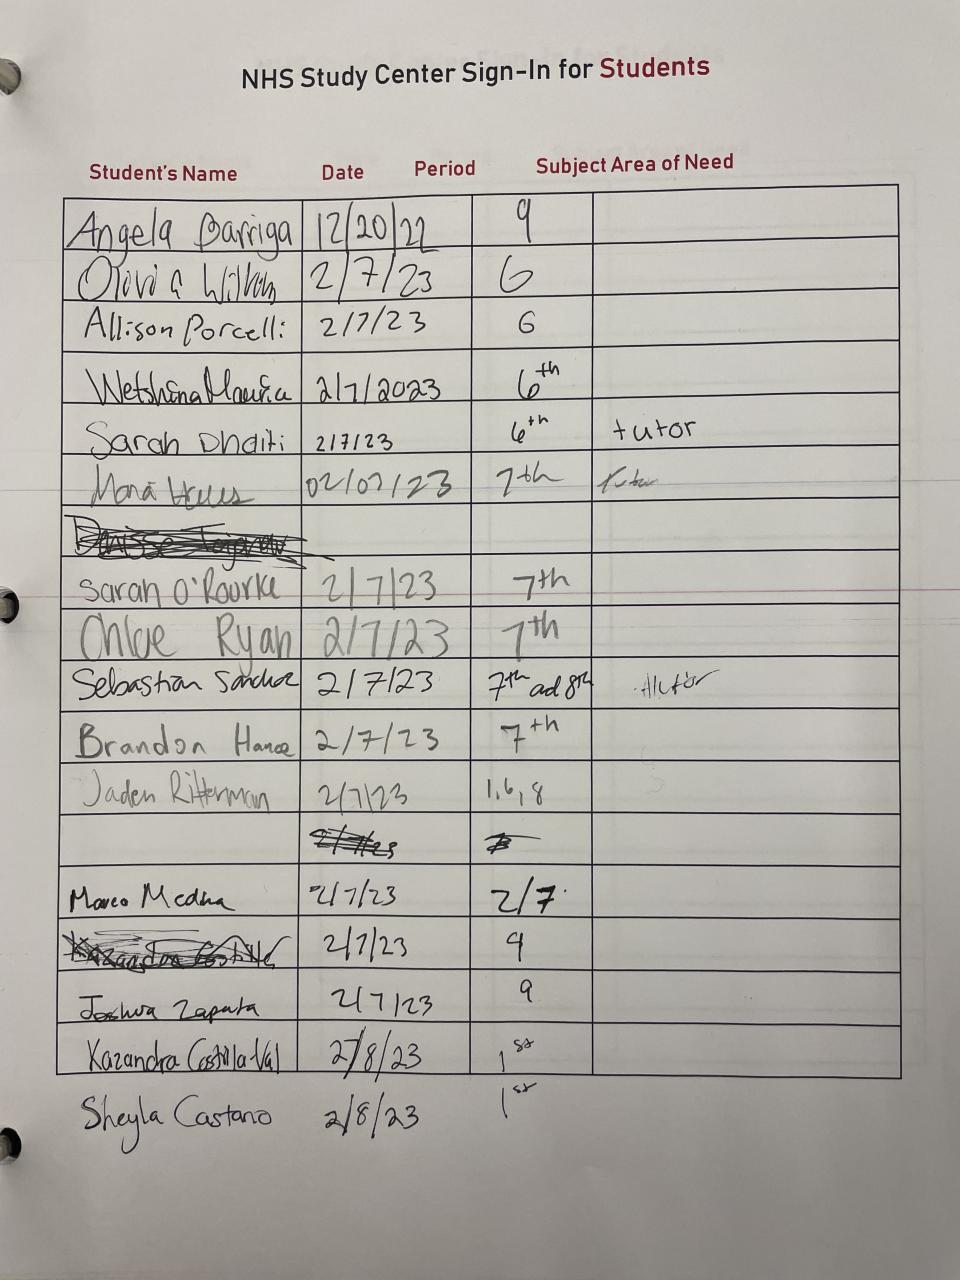 NHS Study Center Sign-In for Students
Student's Name Date Period Subject Area of Need
Angela Barriga 12/20/22 9
Olivia 2/7/23 6
Allison Porcelli 2/7/23 6
2/7/2023 6th
Sarah Dhaiti 2/7/23 6th tutor
02/07/23 7th
Sarah O'Rourke 2/7/23 7th
Chloe Ryan 2/7/23 7th
Sebastian 2/7/23 7th ad 8th
Brandon 2/7/23 7th
Jaden Ritterman 2/7/23 1,6,8
Marco Medina 2/7/23 2/7
2/7/23 9
Joshua Zapata 2/7/23 9
Kazandra Costilla Val 2/8/23 1st
Sheyla Castano 2/8/23 1st